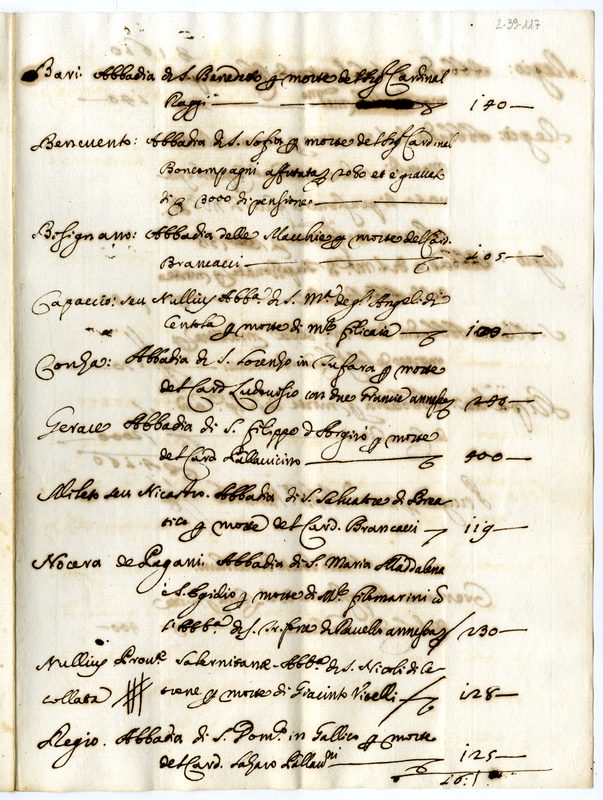 2-39-117
Bari. Abbadia di S. Benedetto p morte del Sig.r Cardinal
Raggi 140
Benevento: Abbadia di S. Sofia p morte del Sig.r Cardinal
Boncompagni affittata 2080 et è
di 3000 di pensione
Bisignano: Abbadia delle Macchie p morte del Card.
Brancacci 105
Capaccio: seu Nullius Abb.a di S. M.a degl'Angeli di
Centola p morte di Filicaia
Conza: Abbadia di S. Lorenzo in Tufara p morte
del Card Ludovisio con due Grancie annesse 240
Gerace Abbadia di S. Filippo d'Argirò p morte
del Card Pallavicino 400
Mileto seu Nicastro. Abbadia di S. Salvatore di
p morte del Card. Brancacci 119
Nocera de Pagani Abbadia di S. Maria Maddalena
è S. Egilio p morte di M.r Filomarini
l'Abb.a di S. Trifone di Ravello annessa 230
Nullius Prou.æ Salernitanæ Abb.a di S. Nicolò di
collata p morte di Giacinto Vitelli 128
Regio. Abbadia di S. Dom.co in Gallico p morte
del Card. Lazaro Pallau.ni 125